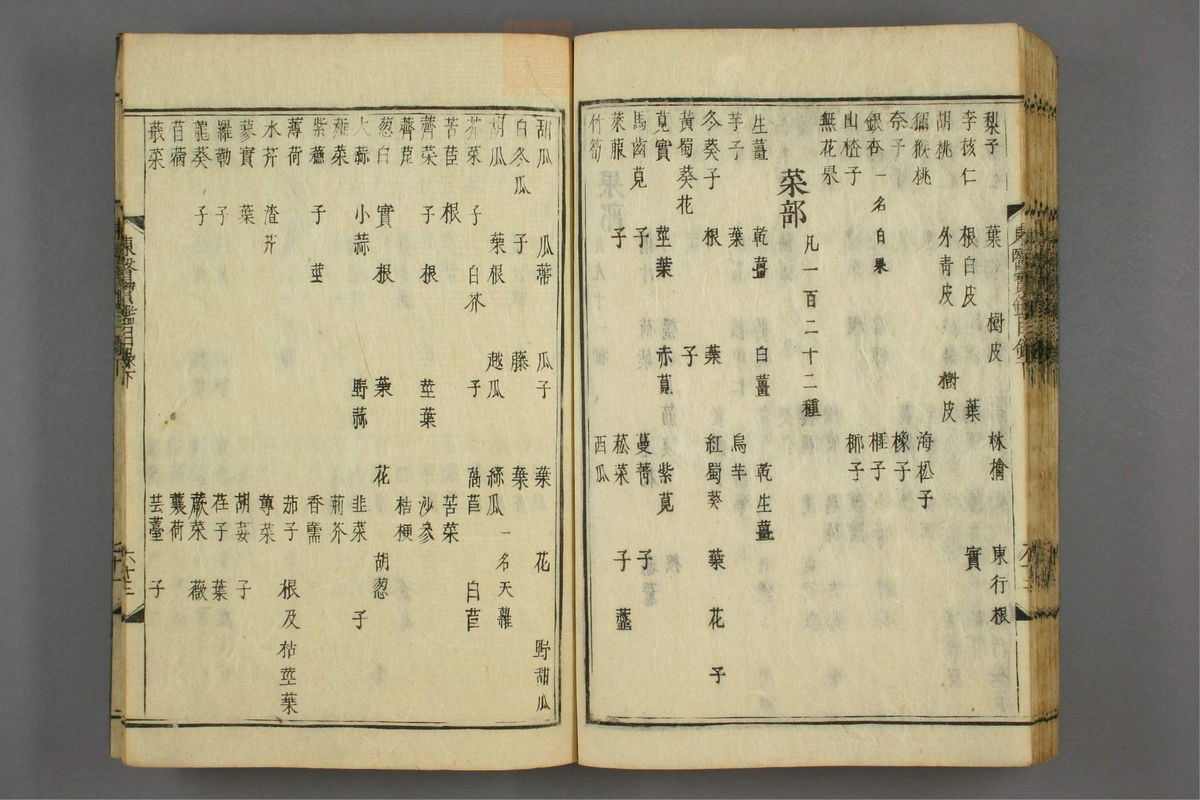 梨子 葉 樹皮 林檎 東行根
李核仁 根白皮 葉 實
胡桃 外青皮 樹皮 海松子
獼猴桃 橡子
柰子 榧子
銀杏 一名白果 椰子
山樝子
無花果
菜部 凡一百二十二種
生薑 乾薑 白薑 乾生薑
芋子 葉 烏芋
冬葵子 根 葉 紅蜀葵 葉 花 子
黃蜀葵花 子
莧實 莖葉 赤莧 紫莧
馬齒莧 子 蔓菁 子
萊菔 子 菘菜 子 虀
竹筍 西瓜
甜瓜 瓜蒂 瓜子 葉 花 野甜瓜
白冬瓜 子 藤 葉
胡瓜 葉根 越瓜 絲瓜 一名天羅
芥菜 子 白芥 子 萵苣 白苣
苦苣 根 苦菜
薺菜 子 根 莖葉 沙參
薺苨 桔梗
葱白 實 根 葉 花 胡葱
大蒜 小蒜 野蒜 韭菜 子
薤菜 荊芥
紫蘇 子 莖 香薷
薄荷 茄子 根及枯莖葉
水芹 渣芹 蓴菜
蓼實 葉 胡荽 子
羅勒 子 荏子 葉
龍葵 子 蕨菜 薇
苜蓿 蘘荷
蕺菜 芸薹 子
東醫寶鑑目錄下
六十三